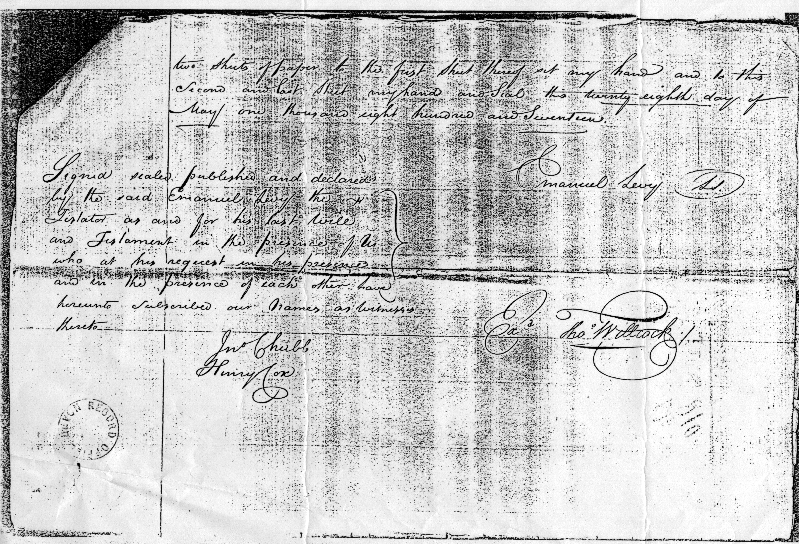 two Sheets of paper to the first Sheet thereof set my hand and to this
Second and last Sheet my hand and Seal this twenty eighth day of
May one thousand eight hundred and Seventeen
Signed sealed published and declared
by the said Emanuel Levy the
Testator as and for his last Will
and Testament in the presence of Us
who at his request in his presence
and in the presence of each other have
hereunto subscribed our Names as Witnesses
thereto
Emanuel Levy
Jno Chubb
Henry Cox
Exd.
RECORD OFFICE